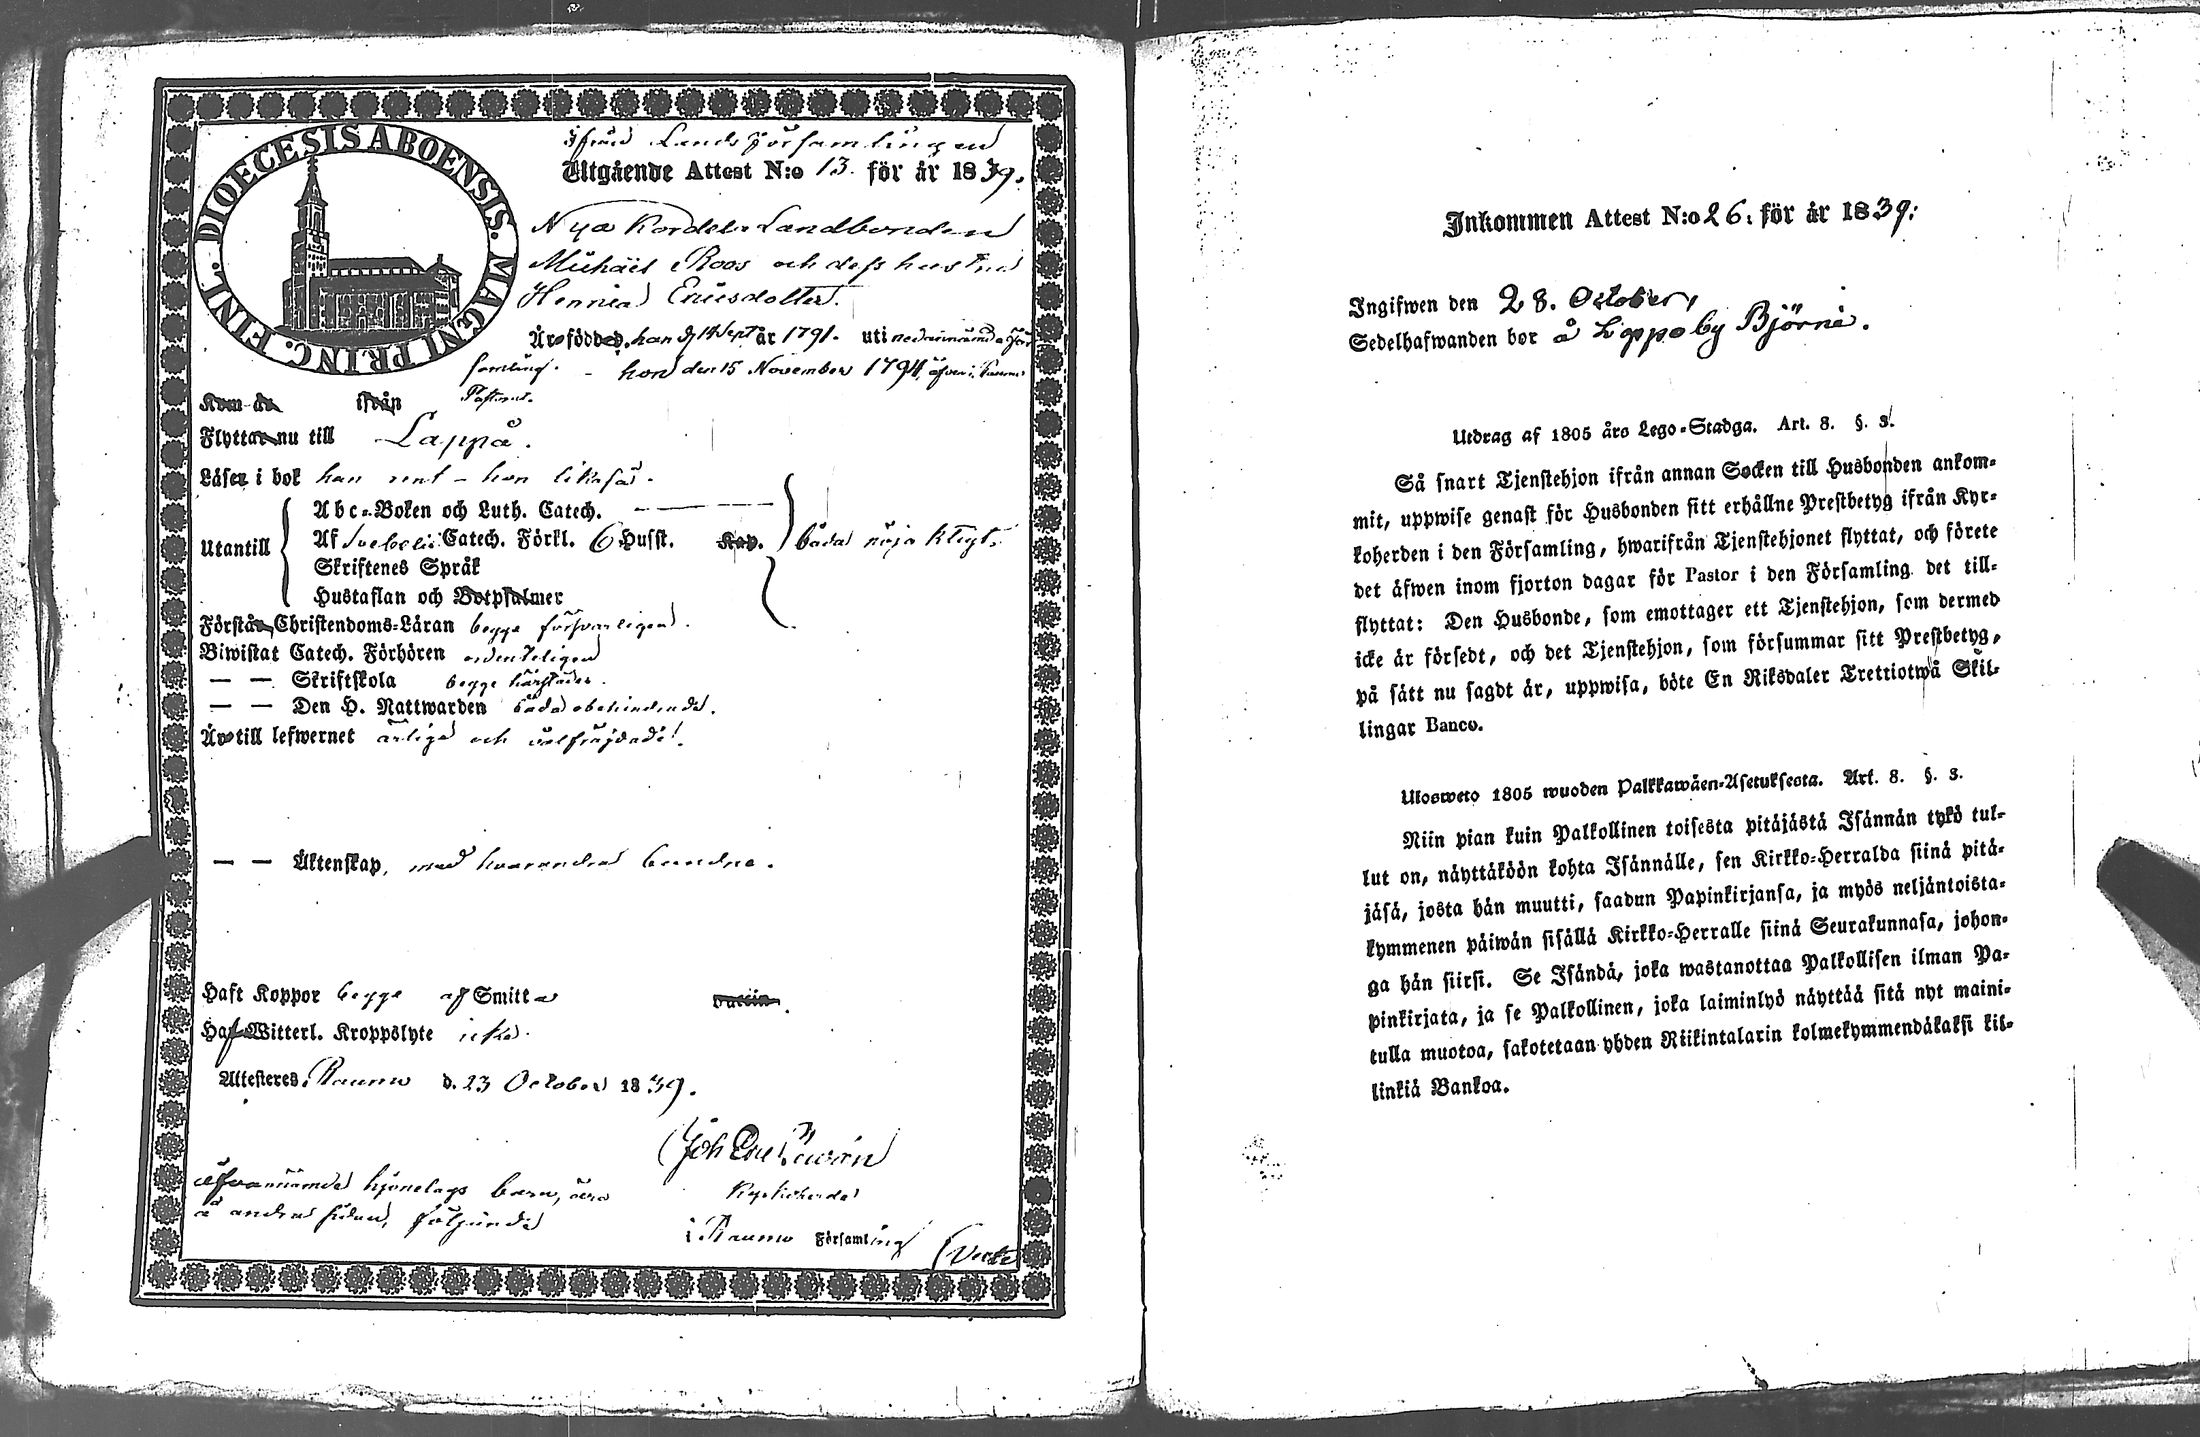 DIOECESIS ABOENSIS. MAGNI PRINC. FINL.
ifrån Lands Församlingen
Utgående Attest N:o 13. för år 1839.
Nya Kordela Landbonden
Michäel Roos och dess hustru
Henrica Ericsdotter.
Äro födde, han d. 14 Sept år 1791. uti nedannämnde För
samling. - hon den 15 November 1794, äfven i Raumo
Pastorat.
Kom de ifrån
Flyttar nu till Lappå.
Läser i bok han rent - hon likaså.
Utantill
Abc-Boken och Luth. Catech.
Af Svebelii Catech. Förkl. 6 Husst. Kap.
Skriftenes Språk
Hustaflan och Botpsalmer
båda nöjaktigt.
Förstår Christendoms-Läran begge försvarligen.
Biwistat Catech. Förhören ordenteligen
— — Skriftskola begge härstädes.
— — Den H. Nattwarden båda obehindrade.
Äro till lefwernet ärliga och välfräjdade.
— — Äktenskap, med hvarandra bundne.
Haft Koppor begge af Smitta vaccin.
Haf Witterl. Kroppslyte icke.
Attesteres, Raumo d. 23 October 1839.
Joh
Kyrkoherde
i Raumo Församling
ofvannämde hjonelags barn, äro
å andra sidan, följande
(Verte
Inkommen Attest N:o 26: för år 1839:
Ingifwen den 28. October,
Sedelhafwanden bor å Lappo by Björni.
Utdrag af 1805 års Lego-Stadga. Art. 8. §. 3.
Så snart Tjenstehjon ifrån annan Socken till Husbonden ankom-
mit, uppwise genast för Husbonden sitt erhållne Prestbetyg ifrån Kyr-
koherden i den Församling, hwarifrån Tjenstehjonet flyttat, och förete
det äfwen inom fjorton dagar för Pastor i den Församling det till-
flyttat: Den Husbonde, som emottager ett Tjenstehjon, som dermed
icke är försedt, och det Tjenstehjon, som försummar sitt Prestbetyg,
på sätt nu sagdt är, uppwisa, böte En Riksdaler Trettiotwå Skil-
lingar Banco.
Ulosweto 1805 wuoden Palkkawäen-Asetuksesta. Art. 8. §. 3.
Niin pian kuin Palkollinen toisesta pitäjästä Isännän tykö tul-
lut on, näyttäköön kohta Isännälle, sen Kirkko-Herralda siinä pitä-
jäsä, josta hän muutti, saadun Papinkirjansa, ja myös neljäntoista-
kymmenen päiwän sisällä Kirkko-Herralle siinä Seurakunnasa, johon-
ga hän siirsi. Se Isändä, joka wastanottaa Palkollisen ilman Pa-
pinkirjata, ja se Palkollinen, joka laiminlyö näyttää sitä nyt maini-
tulla muotoa, sakotetaan yhden Riikintalarin kolmekymmendäkaksi kil-
linkiä Bankoa.